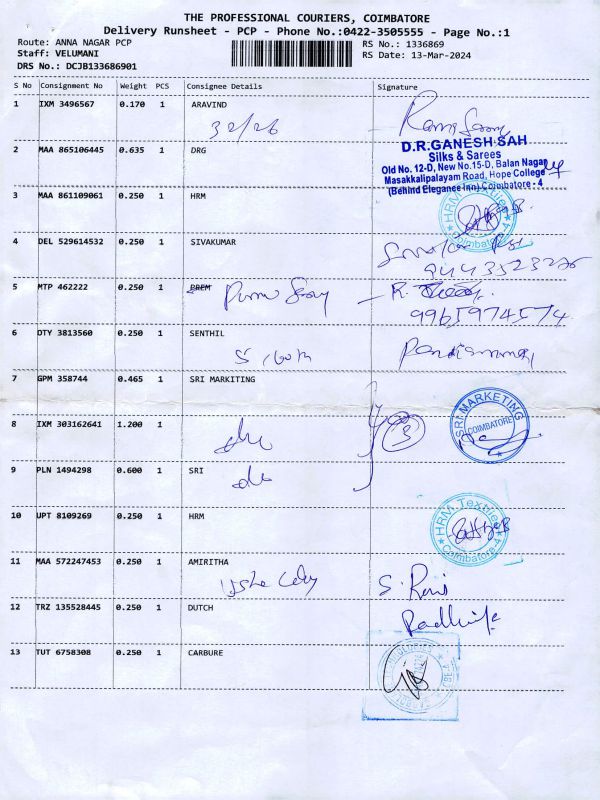 THE PROFESSIONAL COURIERS, COIMBATORE
Delivery Runsheet - PCP - Phone No.:0422-3505555 - Page No.:1
Route: ANNA NAGAR PCP
RS No.: 1336869
Staff: VELUMANI
RS Date: 13-Mar-2024
DRS No.: DCJB133686901
S No Consignment No Weight PCS Consignee Details Signature
1 IXM 3496567 0.170 1 ARAVIND
32/26
2 MAA 865106445 0.635 1 DRG
D.R.GANESH SAH
Silks & Sarees
Old No. 12-D, New No.15-D, Balan Nagar
Masakkalipalayam Road, Hope College
(Behind Elegance Inn) Coimbatore - 4
3 MAA 861109061 0.250 1 HRM
HRM Textiles
Coimbatore-4
4 DEL 529614532 0.250 1 SIVAKUMAR
9443523276
5 MTP 462222 0.250 1 PREM
9965974574
6 DTY 3813560 0.250 1 SENTHIL
7 GPM 358744 0.465 1 SRI MARKITING
SRI MARKETING
COIMBATORE
8 IXM 303162641 1.200 1
3
9 PLN 1494298 0.600 1 SRI
10 UPT 8109269 0.250 1 HRM
HRM Textiles
Coimbatore-4
11 MAA 572247453 0.250 1 AMIRITHA
12 TRZ 135528445 0.250 1 DUTCH
13 TUT 6758308 0.250 1 CARBURE